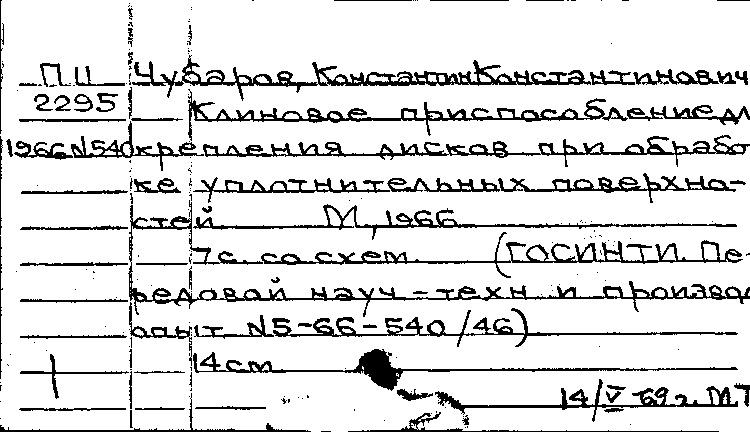 ПЦ Чубаров, Константин Константинович
2295 Клиновое приспособление дл
1966 N540 крепления дисков при обрабо
ке уплотнительных поверхно-
стей М, 1966
7с. со схем. (ГОСИНТИ. Пе-
редовой науч-техн и производ
опыт N5-66-540/46)
14см
14/V-69г. М.Т